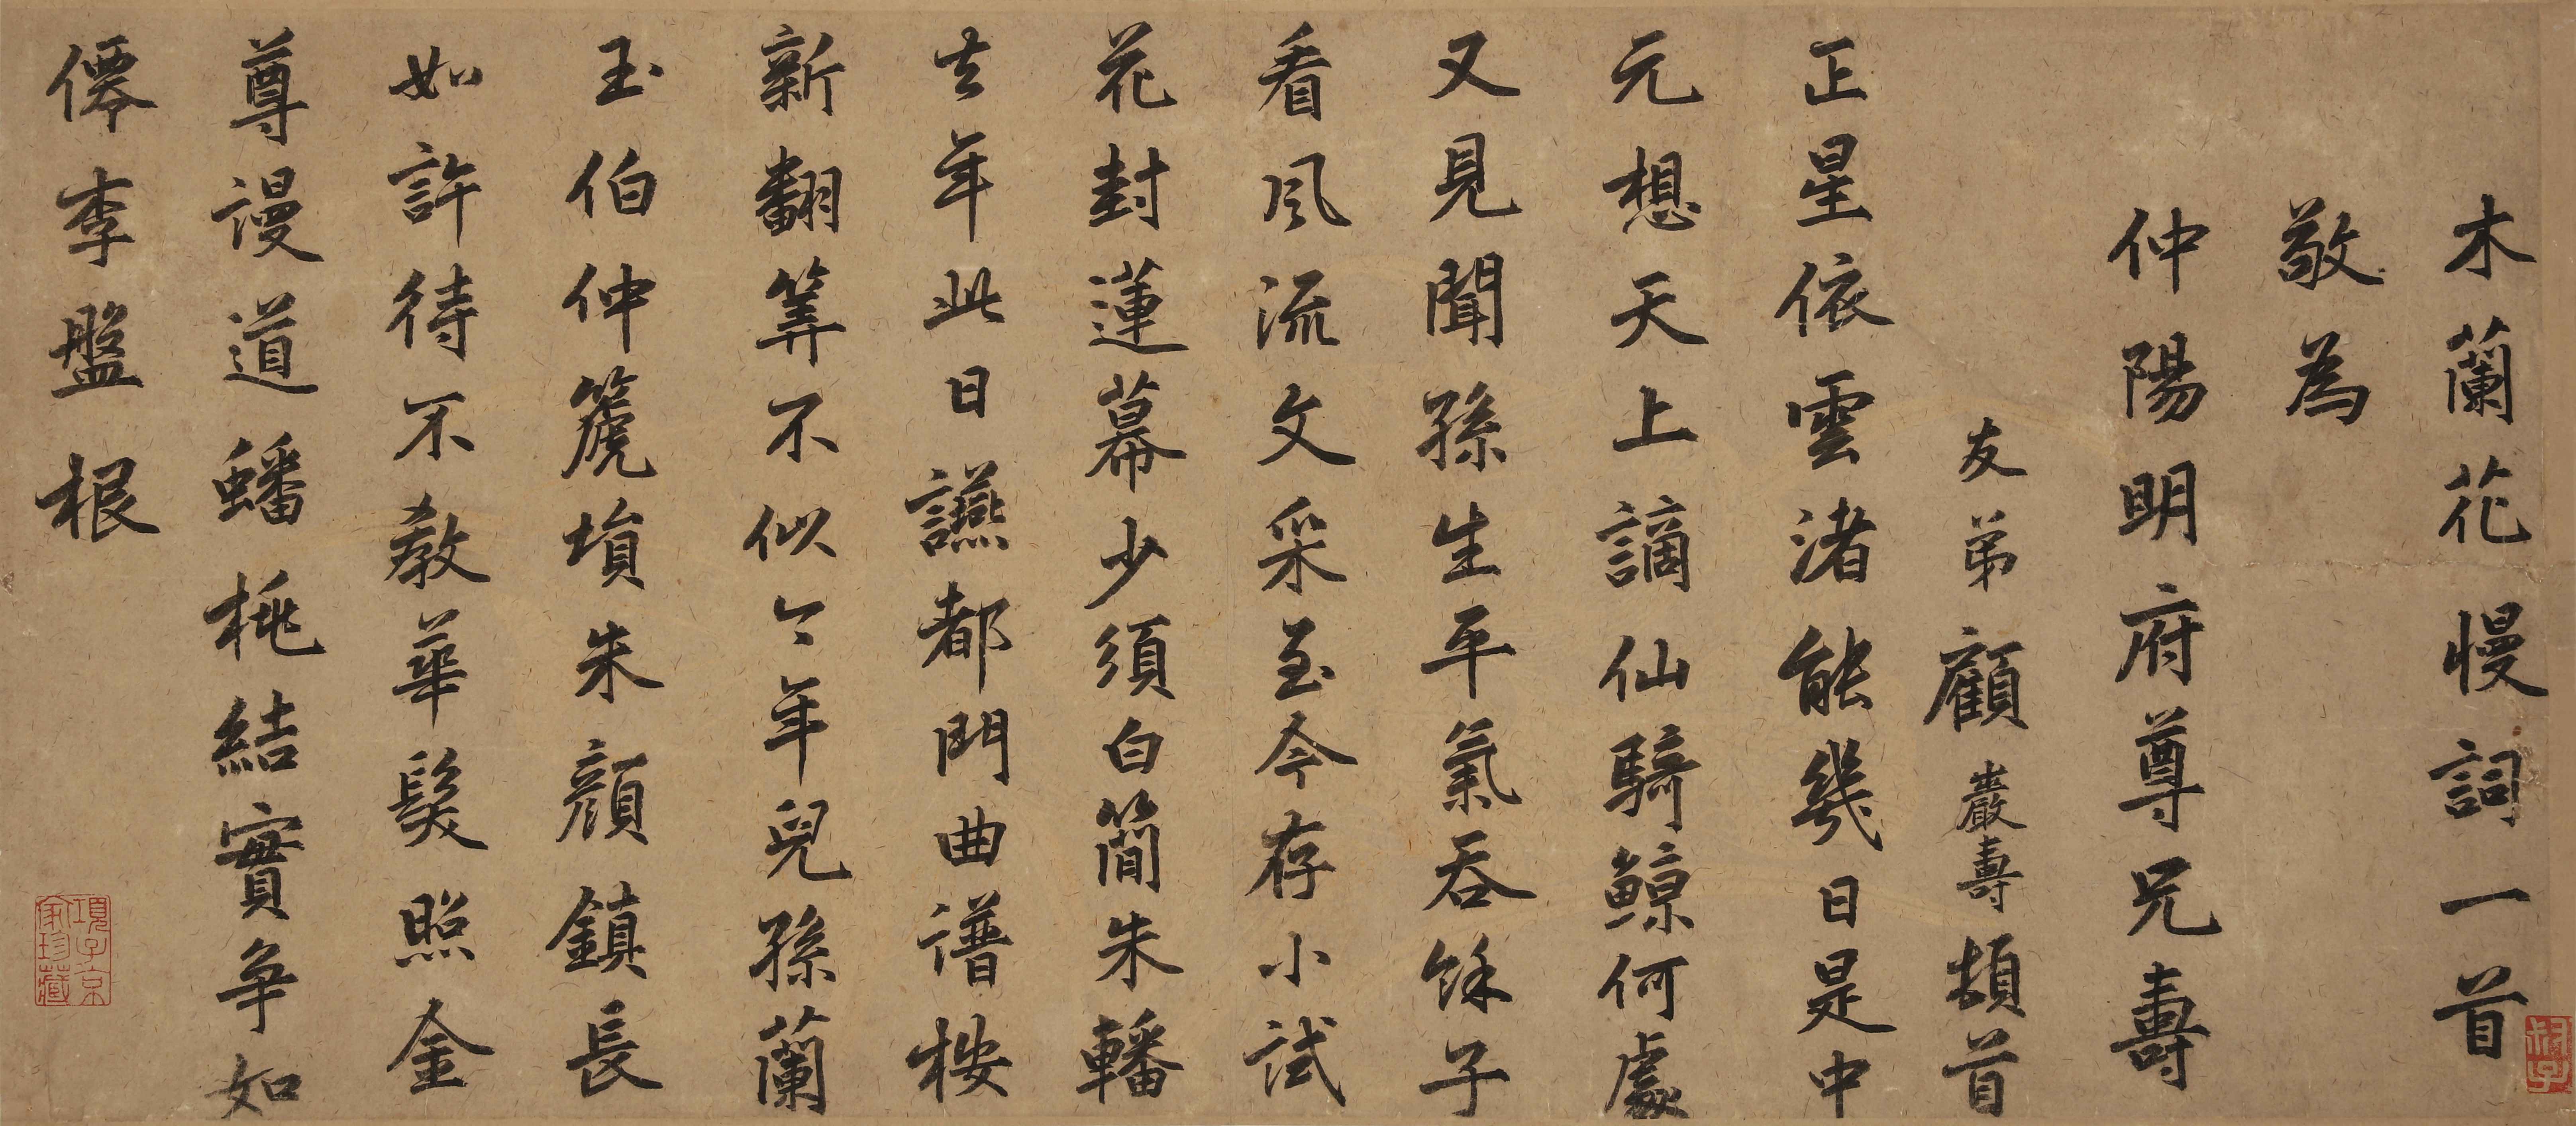 木蘭花慢詞一首
敬為
仲陽明府尊兄壽
友弟顧巖壽頓首
正星依雲渚能幾日是中
元想天上謫仙騎鯨何處
又見聞孫生平氣吞餘子
看風流文采至今存小試
花封蓮幕少須白簡朱轓
去年此日讌都門曲譜桉
新翻筭不似今年兒孫蘭
玉伯仲篪塤朱顏鎮長
如許待不教華髮照金
尊謾道蟠桃結實爭如
僊李盤根
項子京
家珍藏